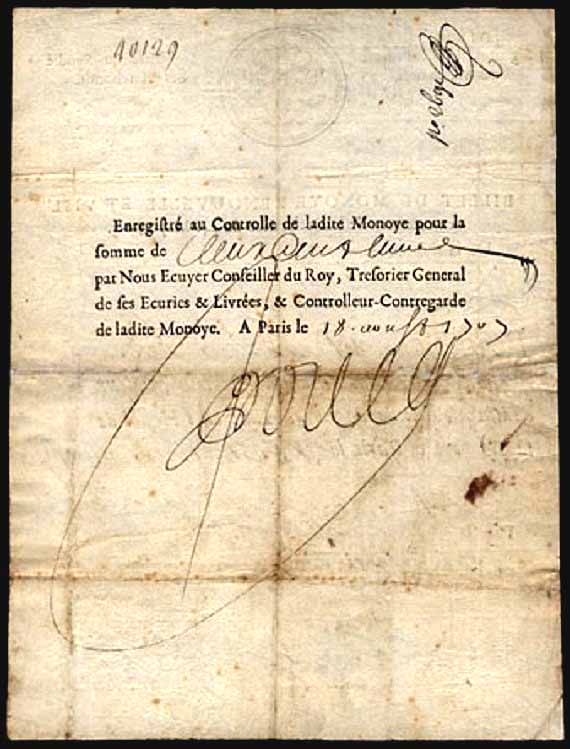 40129
Enregistré au Controlle de ladite Monoye pour la
somme de deux Cens Livres
par Nous Ecuyer Conseiller du Roy, Tresorier General
de ses Ecuries & Livrées, & Controlleur-Contregarde
de ladite Monoye. A Paris le 18. aoust 1707